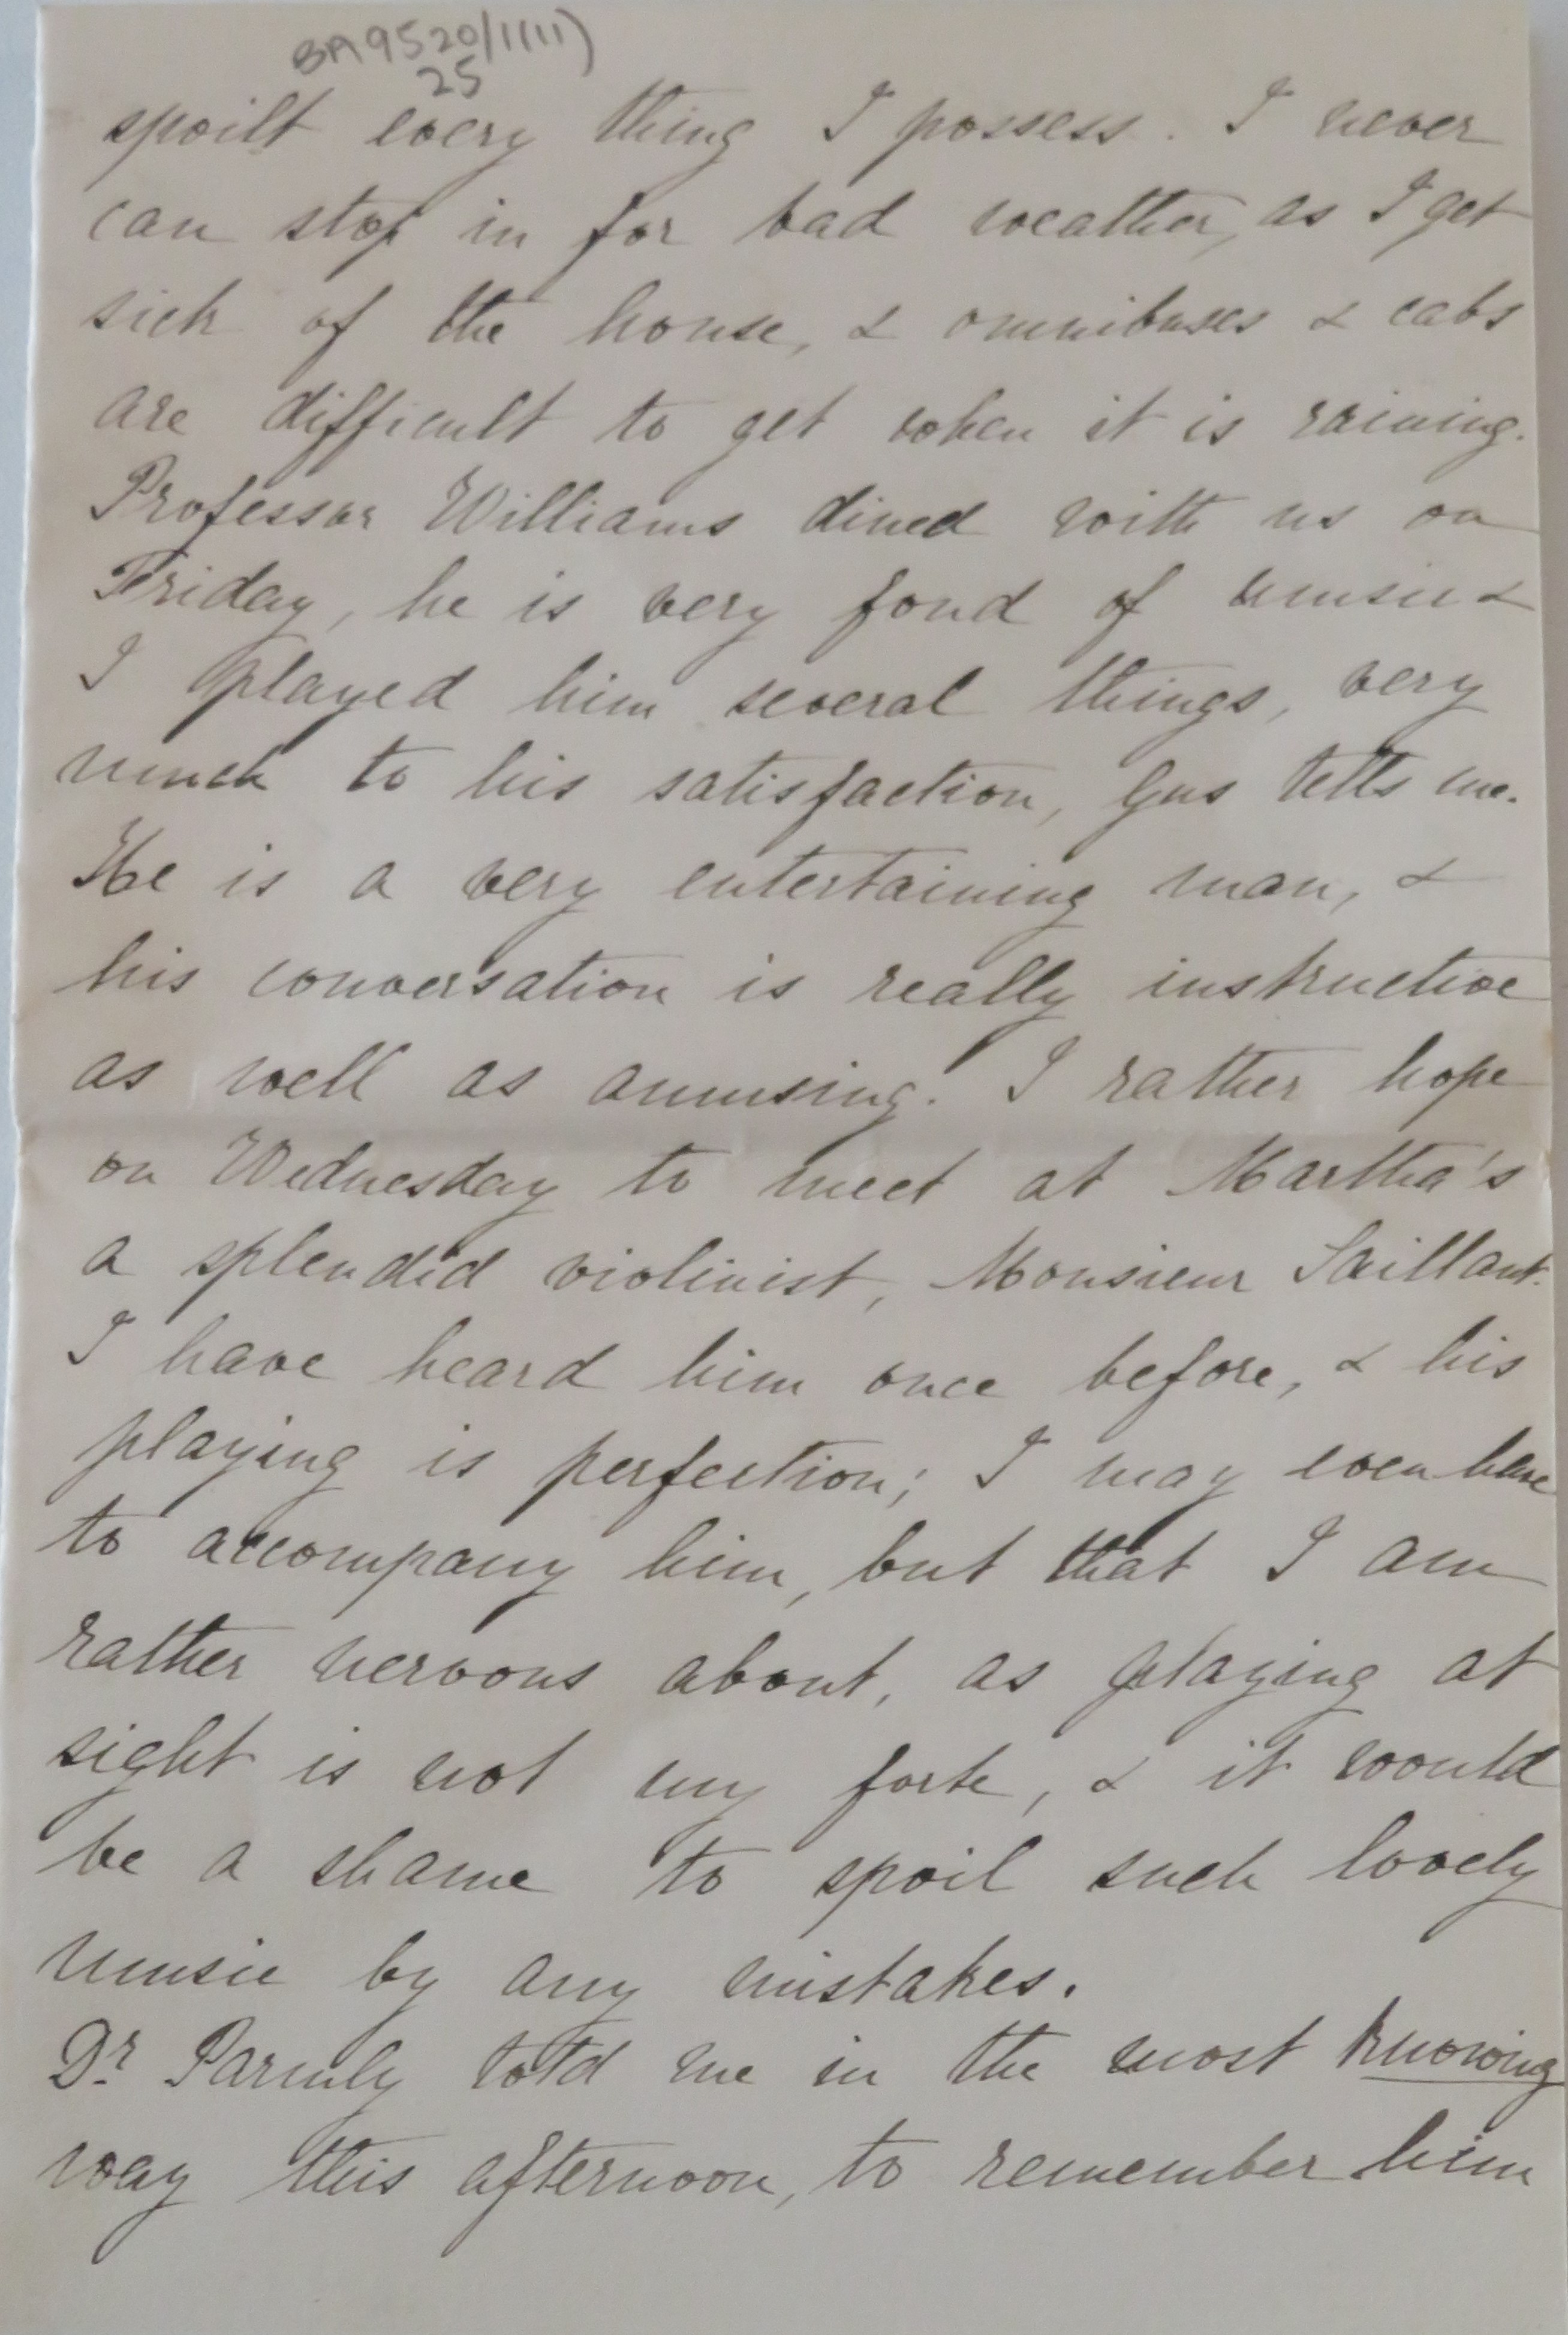 BA9520/1(11)
25
spoilt every thing I possess. I never
can stop in for bad weather, as I get
sick of the house, & omnibuses & cabs
are difficult to get when it is raining.
Professor Williams dined with us on
Friday, he is very fond of music &
I played him several things, very
much to his satisfaction, Gus tells me.
He is a very entertaining man, &
his conversation is really instructive
as well as amusing. I rather hope
on Wednesday to meet at Martha's
a splendid violinist, Monsieur Saillant.
I have heard him once before, & his
playing is perfection; I may even have
to accompany him, but that I am
rather nervous about, as playing at
sight is not my forte, & it would
be a shame to spoil such lovely
music by any mistakes.
Dr. Parmly told me in the most knowing
way this afternoon, to remember him